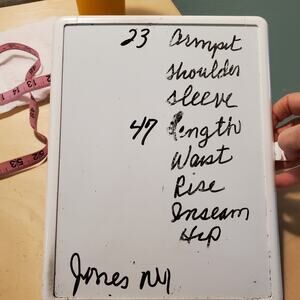 23 armpit
shoulder
sleeve
47 length
Waist
Rise
Inseam
Hip
Jones NY